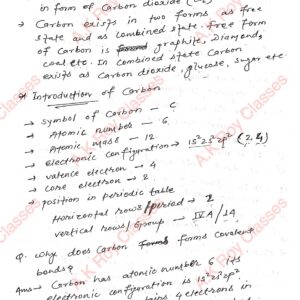 in form of Carbon dioxide
→ Carbon exists in two forms as free
state and as combined state. Free form
of Carbon is graphite, Diamond,
coal etc. In combined state Carbon
exists as Carbon dioxide, glucose, sugar etc
* Introduction of Carbon
→ symbol of carbon - C
→ Atomic number - 6
→ Atomic mass - 12
→ electronic configuration → 1s²2s²2p² (2,4)
→ valence electron - 4
→ core electron - 2
→ position in periodic table
Horizontal rows/period - 2
vertical rows/Group - IV A/14
Q. why does Carbon forms covalent
bonds?
Ans → Carbon has atomic number 6. Its
electronic configuration is 1s²2s²2p².
4 electrons in
A.K Roy Classes